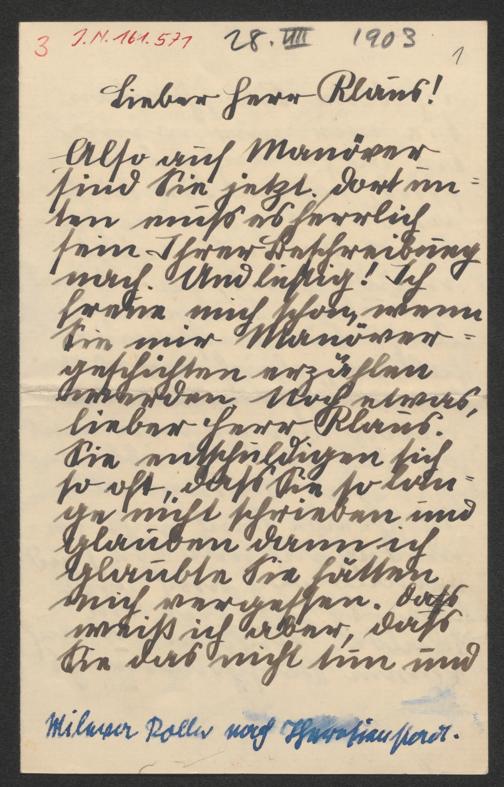 3 J.N. 161.571 28. VIII 1903
1
Lieber Herr Klaus!
Also auf Manöver
sind Sie jetzt. Dort un=
ten muß es herrlich
sein Ihrer Beschreibung
nach. Und lustig! Ich
freue mich schon, wenn
Sie mir Manöver=
geschichten erzählen
werden. Noch etwas,
lieber Herr Klaus.
Sie entschuldigen sich
so oft, dass Sie so lan=
ge nicht schrieben und
glauben dann ich
glaubte Sie hätten
mich vergessen. Dass
weiß ich aber, dass
Sie das nicht tun und
Mileva Roller nach Theresienstadt.